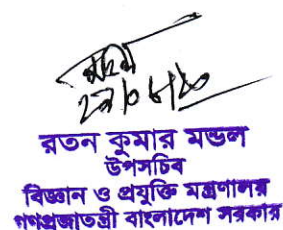 রতন কুমার মন্ডল
উপসচিব
বিজ্ঞান ও প্রযুক্তি মন্ত্রণালয়
গণপ্রজাতন্ত্রী বাংলাদেশ সরকার